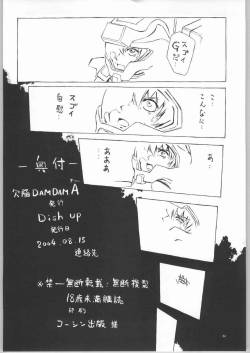 スゴイ
Gだ…
こんなに
…
あああ
スゴイ
自慰…
ー奥付ー
欠陥DAMDAMÅ
発行
Dish up
発行日
2004.08.15
連絡先
※禁一無断転載・無断複製
18歳未満購読
印刷
コーシン出版 様